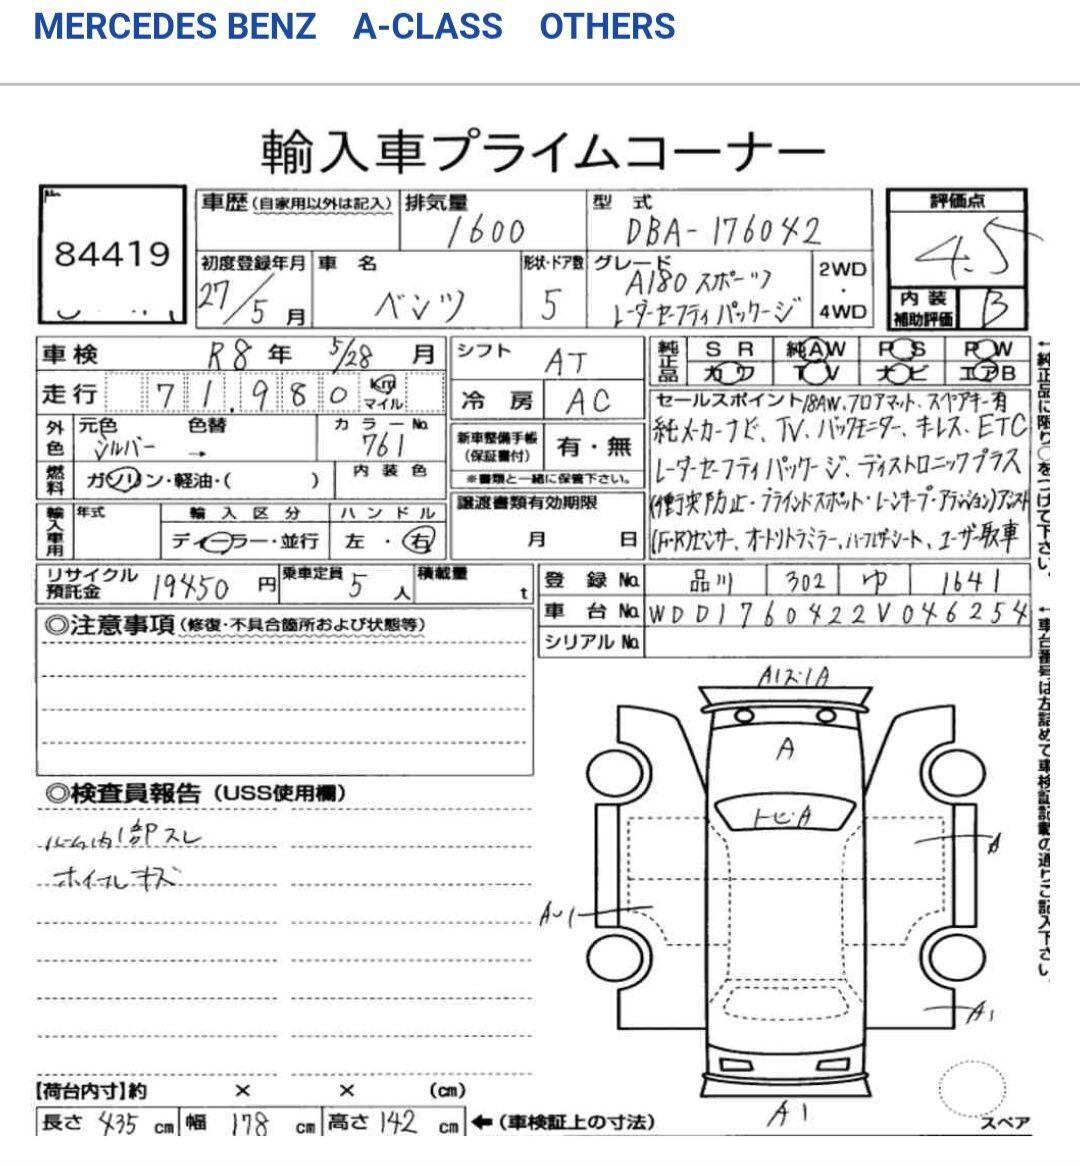 MERCEDES BENZ A-CLASS OTHERS
輸入車プライムコーナー
84419
車歴 (自家用以外は記入) 排気量 1600 型式 DBA-176042
評価点 4.5
初度登録年月 27/5月 車名 ベンツ 形状・ドア数 5 グレード A180 スポーツ
レーダーセーフティパッケージ
2WD・4WD
内装補助評価 B
車検 R8年 5/28月 シフト AT
純正品 SR 純AW PS PW
カワ TV ナビ エアB
走行 71,980 km マイル 冷房 AC
外色 元色 シルバー 色替 → カラーNo. 761
新車整備手帳 (保証書付) 有・無
※書類と一緒に保管下さい。
燃料 ガソリン・軽油・( ) 内装色
輸入車用 年式 輸入区分 ディーラー・並行 ハンドル 左・右
譲渡書類有効期限 月 日
セールスポイント 18AW、フロアマット、スペアキー有
純メーカーナビ、TV、バックモニター、キーレス、ETC
レーダーセーフティパッケージ、ディストロニックプラス
(衝突防止・ブラインドスポット・レーンキープ・アテンション)アシスト
(F・R)センサー、オートリトラミラー、ハーフレザーシート、ユーザー買取車
←純正品に限り○をつけて下さい。
リサイクル預託金 19450円 乗車定員 5人 積載量 t
登録No. 品川 302 ゆ 1641
車台No. WDD1760422V046254
シリアルNo.
←車台番号は左詰めで車検証記載の通りご記入下さい。
◎注意事項 (修復・不具合箇所および状態等)
◎検査員報告 (USS使用欄)
ルーム内1部スレ
ホイールキズ
A
トビA
A
A1
A1
スペア
【荷台内寸】約 × × (cm)
長さ 435 cm 幅 178 cm 高さ 142 cm ←(車検証上の寸法)